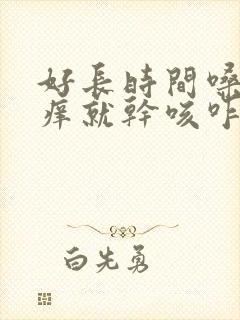 好長時間嗓
癢就幹咳咋
白先勇